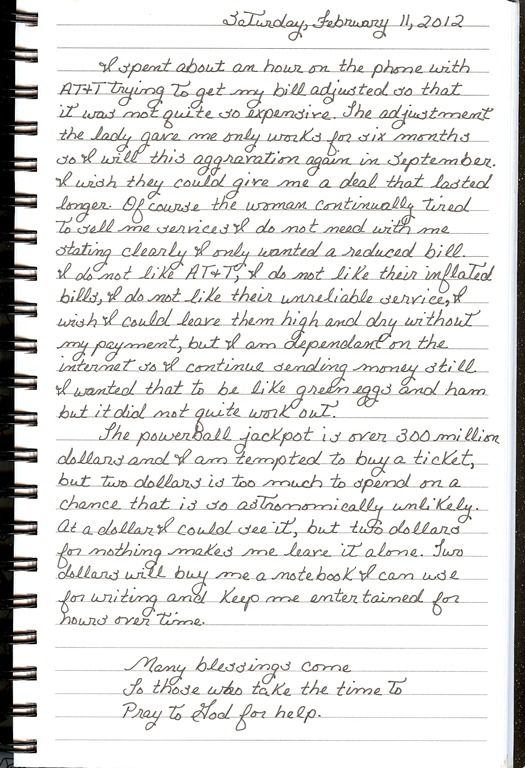 Saturday, February 11, 2012
I spent about an hour on the phone with
AT&T trying to get my bill adjusted so that
it was not quite so expensive. The adjustment
the lady gave me only works for six months
so I will this aggravation again in September.
I wish they could give me a deal that lasted
longer. Of course the woman continually tired
to sell me services I do not need with me
stating clearly I only wanted a reduced bill.
I do not like AT&T, I do not like their inflated
bills, I do not like their unreliable service, I
wish I could leave them high and dry without
my payment, but I am dependant on the
internet so I continue sending money still.
I wanted that to be like green eggs and ham
but it did not quite work out.
The powerball jackpot is over 300 million
dollars and I am tempted to buy a ticket,
but two dollars is too much to spend on a
chance that is so astronomically unlikely.
At a dollar I could see it, but two dollars
for nothing makes me leave it alone. Two
dollars will buy me a notebook I can use
for writing and keep me entertained for
hours over time.
Many blessings come
To those who take the time to
Pray to God for help.